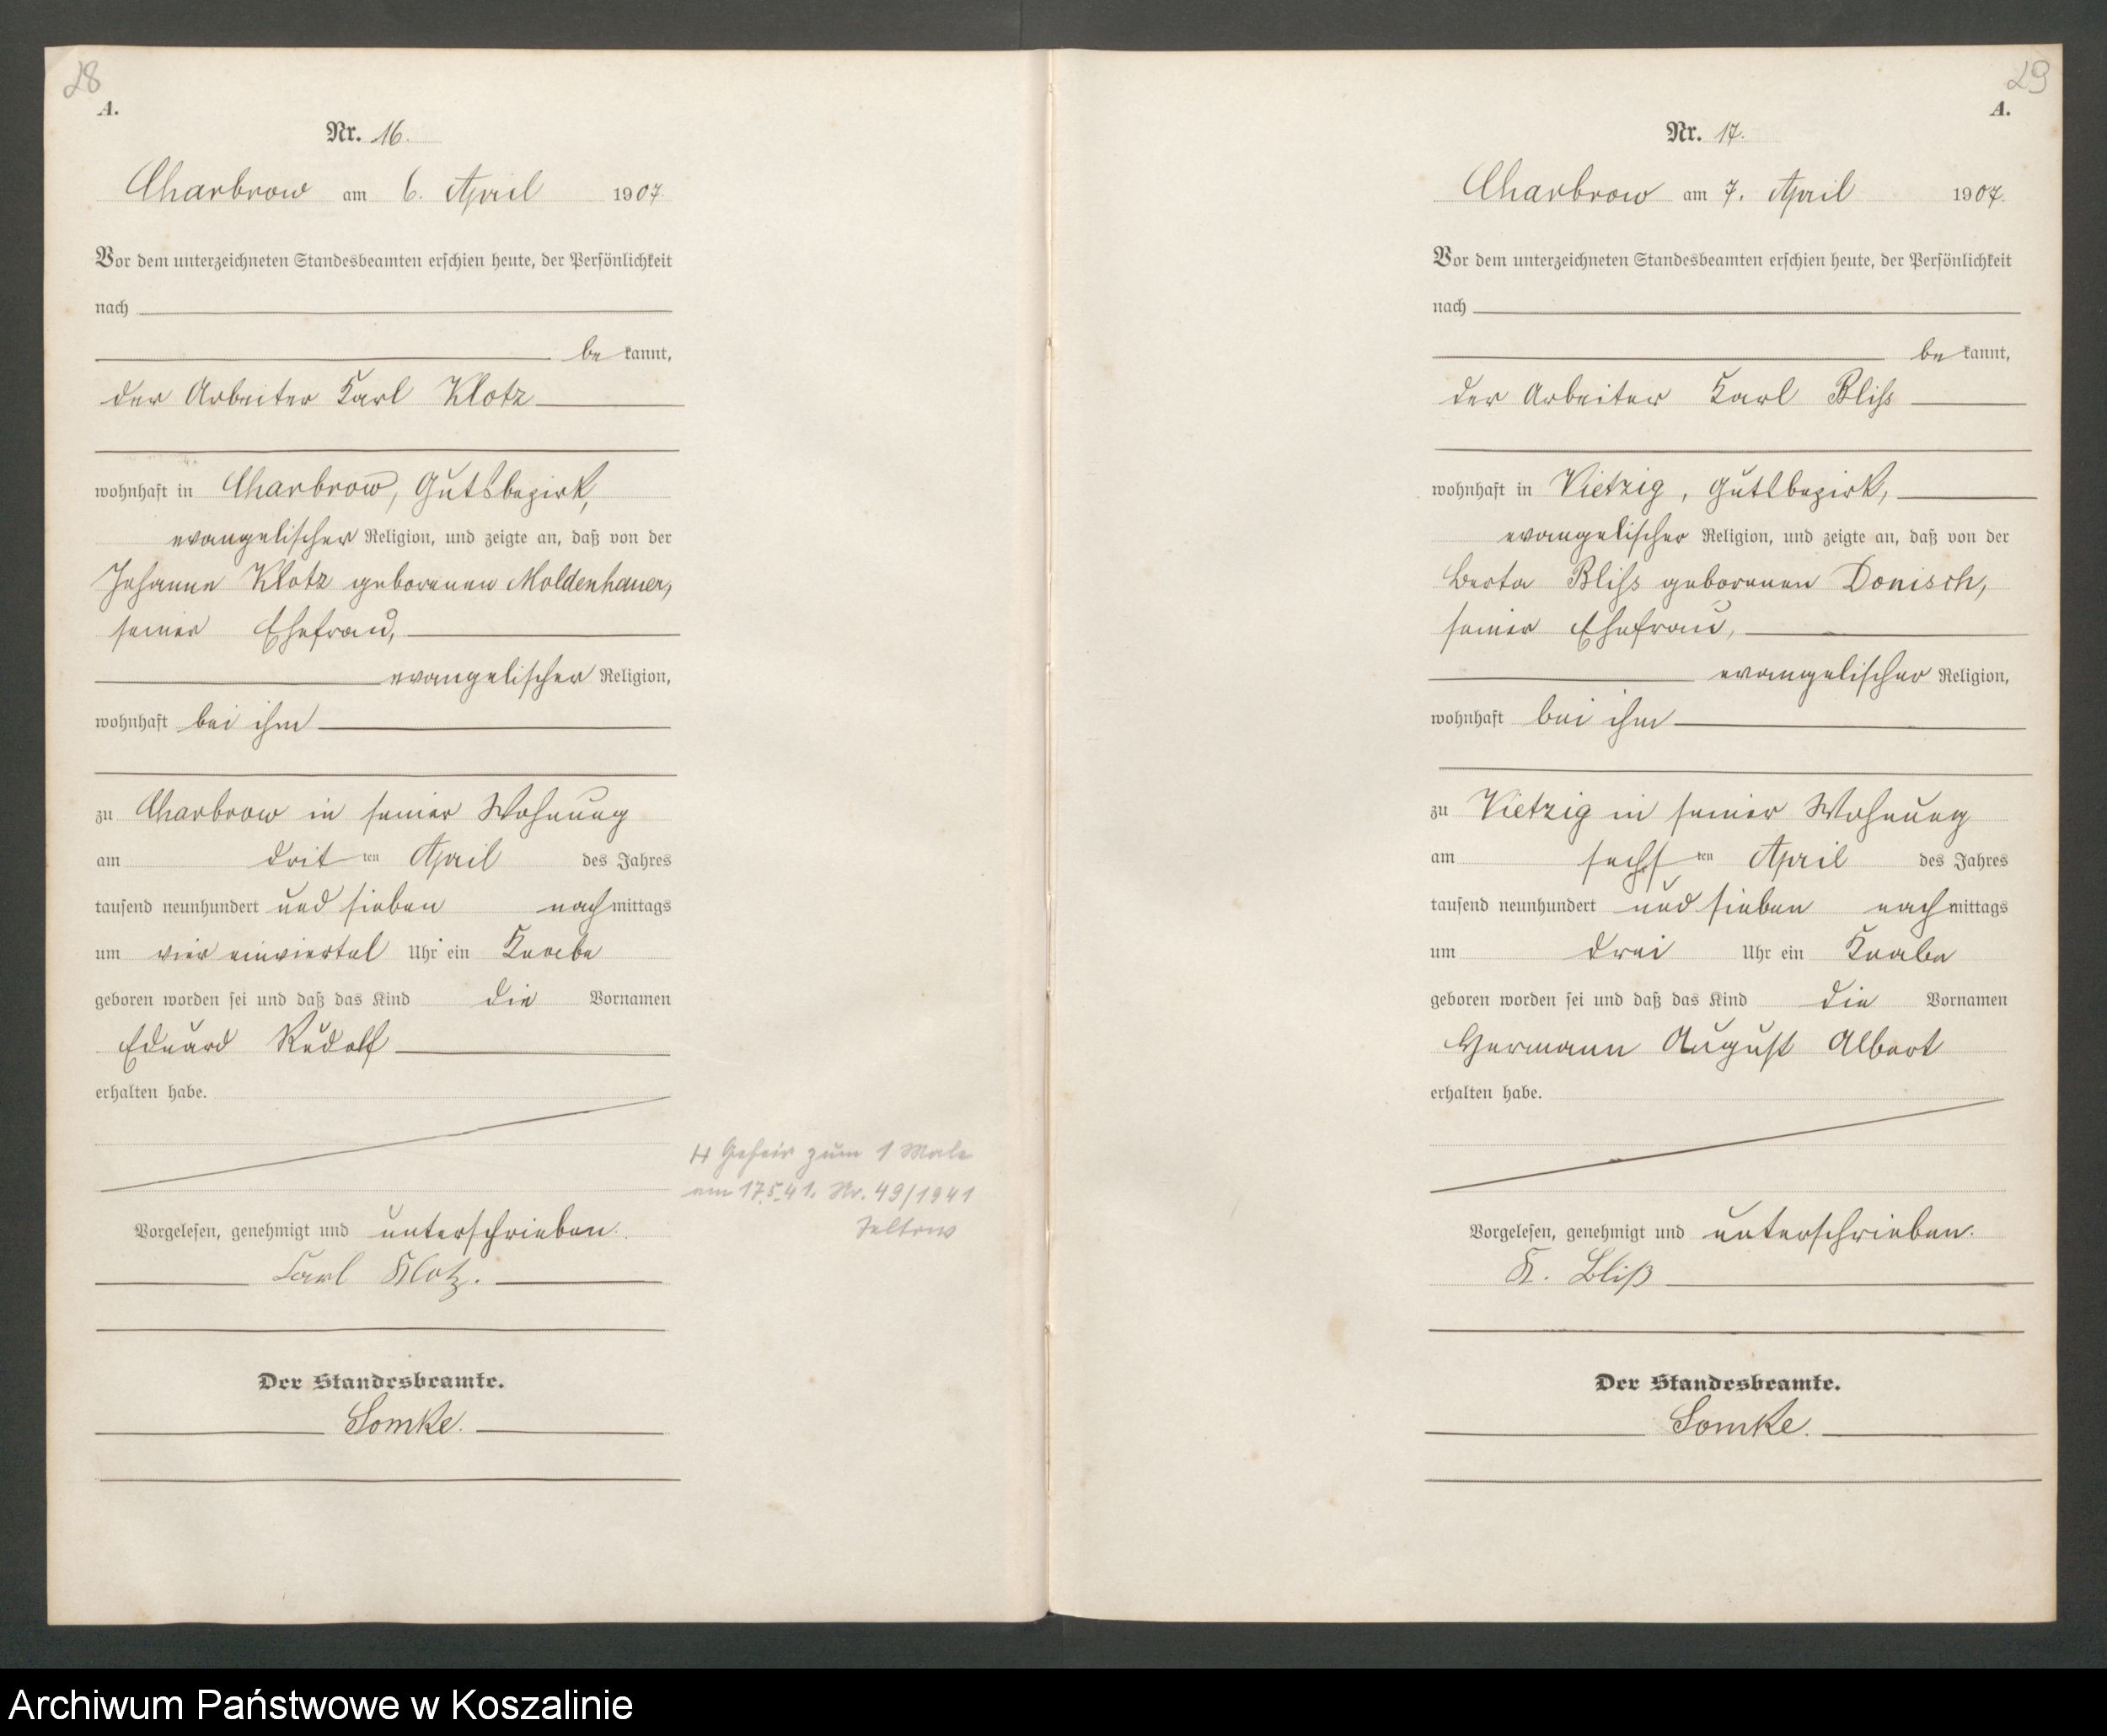 28
A.
Nr. 16.
Charbrow am 6. April 1907.
Vor dem unterzeichneten Standesbeamten erschien heute, der Persönlichkeit
nach
be kannt,
der Arbeiter Karl Klotz
wohnhaft in Charbrow, Gutsbezirk,
evangelischer Religion, und zeigte an, daß von der
Johanne Klotz geborenen Moldenhauer,
seiner Ehefrau,
evangelischer Religion,
wohnhaft bei ihm
zu Charbrow in seiner Wohnung
am dritten April des Jahres
tausend neunhundert und sieben nachmittags
um vier einviertel Uhr ein Knabe
geboren worden sei und daß das Kind die Vornamen
Eduard Rudolf
erhalten habe.
Geheir zum 1 Male
am 17.5.41. Nr. 49/1941
Teltow
Vorgelesen, genehmigt und unterschrieben.
Carl Klotz.
Der Standesbeamte.
Somke.
29
A.
Nr. 17.
Charbrow am 7. April 1907.
Vor dem unterzeichneten Standesbeamten erschien heute, der Persönlichkeit
nach
be kannt,
der Arbeiter Karl Bliss
wohnhaft in Vietzig, Gutsbezirk,
evangelischer Religion, und zeigte an, daß von der
Berta Bliss geborenen Donisch,
seiner Ehefrau,
evangelischer Religion,
wohnhaft bei ihm
zu Vietzig in seiner Wohnung
am sechsten April des Jahres
tausend neunhundert und sieben nachmittags
um drei Uhr ein Knabe
geboren worden sei und daß das Kind die Vornamen
Hermann August Albert
erhalten habe.
Vorgelesen, genehmigt und unterschrieben.
K. Bliß
Der Standesbeamte.
Somke.
Archiwum Państwowe w Koszalinie